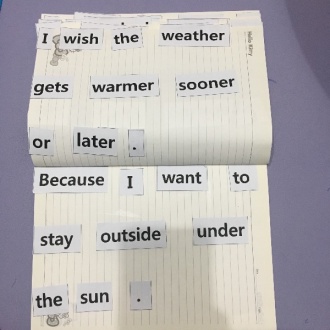 I wish the weather
gets warmer sooner
or later .
Because I want to
stay outside under
the sun .
Hello Kitty